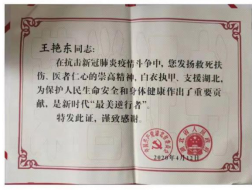 王艳东同志：
在抗击新冠肺炎疫情斗争中，您发扬救死扶
伤、医者仁心的崇高精神，白衣执甲、支援湖北，
为保护人民生命安全和身体健康作出了重要贡
献，是新时代“最美逆行者”。
特发此证，谨致感谢。
2020年4月12日